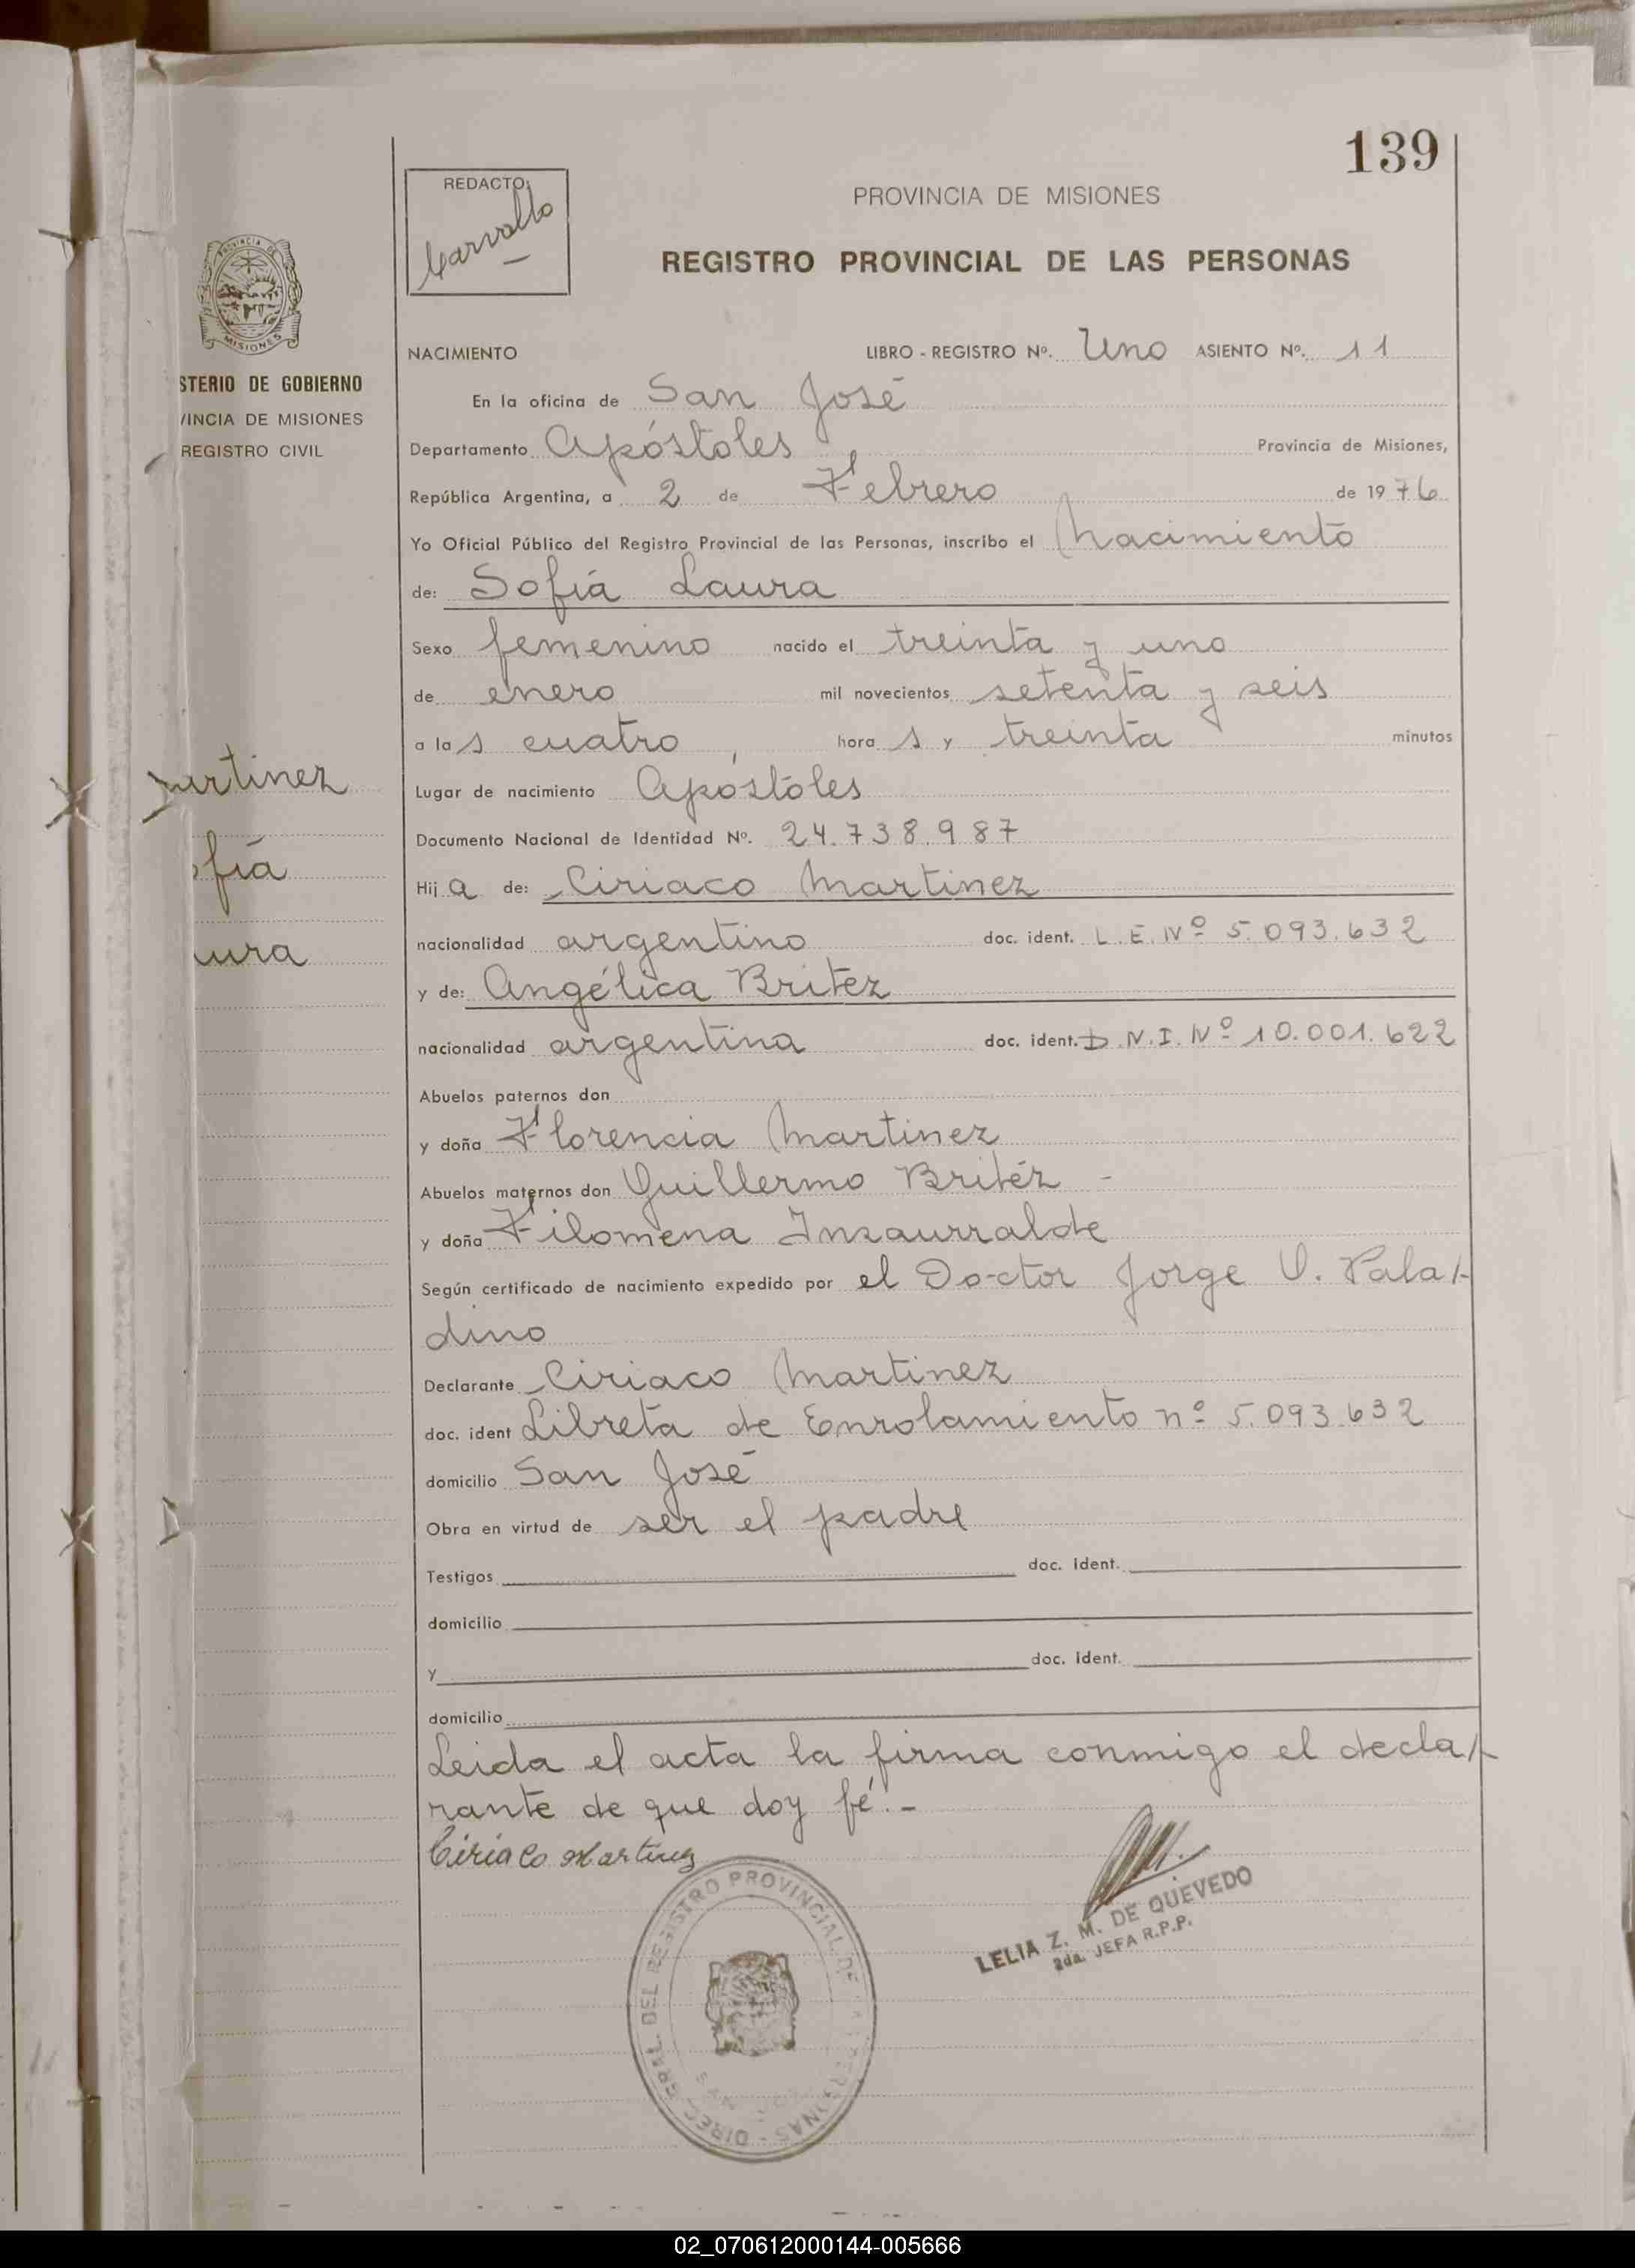 139
REDACTO:
Carvallo
PROVINCIA DE MISIONES
REGISTRO PROVINCIAL DE LAS PERSONAS
MISIONES
STERIO DE GOBIERNO
VINCIA DE MISIONES
REGISTRO CIVIL
artinez
ofía
aura
NACIMIENTO LIBRO - REGISTRO Nº. Uno ASIENTO Nº. 11
En la oficina de San José
Departamento Apóstoles Provincia de Misiones,
República Argentina, a 2 de Febrero de 1976
Yo Oficial Público del Registro Provincial de las Personas, inscribo el Nacimiento
de: Sofía Laura
Sexo femenino nacido el treinta y uno
de enero mil novecientos setenta y seis
a las cuatro, horas y treinta minutos
Lugar de nacimiento Apóstoles
Documento Nacional de Identidad Nº. 24.738.987
Hija de: Ciriaco Martinez
nacionalidad argentino doc. ident. L.E. Nº 5.093.632
y de: Angélica Britez
nacionalidad argentina doc. ident. D.N.I. Nº 10.001.622
Abuelos paternos don
y doña Florencia Martinez
Abuelos maternos don Guillermo Britéz -
y doña Filomena Insaurralde
Según certificado de nacimiento expedido por el Doctor Jorge V. Pala/-
dino
Declarante Ciriaco Martinez
doc. ident Libreta de Enrolamiento nº 5.093.632
domicilio San José
Obra en virtud de ser el padre
Testigos doc. ident.
domicilio
y doc. ident.
domicilio
Leida el acta la firma conmigo el decla/-
rante de que doy fé.-
Ciriaco Martinez
DIREC. GRAL. DEL REGISTRO PROVINCIAL DE LAS PERSONAS
LELIA Z. M. DE QUEVEDO
2da. JEFA R.P.P.
02_070612000144-005666